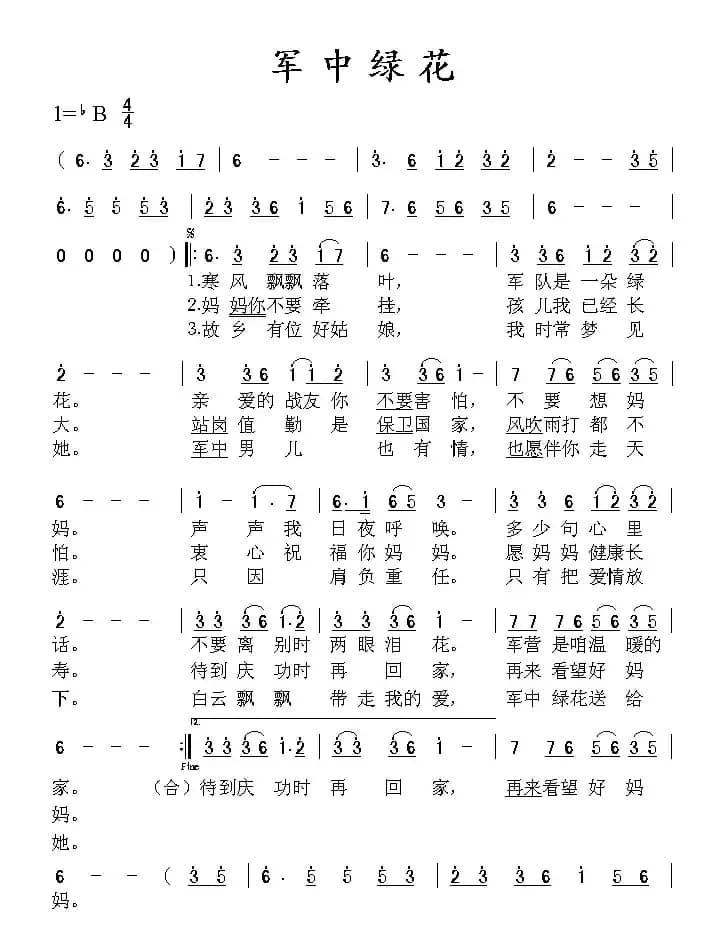 军中绿花
1=♭B 4/4
( 6· 3 2 3 1 7 | 6 - - - | 3· 6 1 2 3 2 | 2 - - 3 5 |
6· 5 5 5 3 | 2 3 3 6 1 5 6 | 7· 6 5 6 3 5 | 6 - - - |
0 0 0 0 ) ‖: 6· 3 2 3 1 7 | 6 - - - | 3 3 6 1 2 3 2 |
1.寒 风 飘飘 落 叶， 军 队是 一朵 绿
2.妈 妈你 不要 牵 挂， 孩 儿我 已经 长
3.故 乡 有位 好姑 娘， 我 时常 梦 见
2 - - - | 3 3 6 1 1 2 | 3 3 6 1 - | 7 7 6 5 6 3 5 |
花。 亲 爱的 战友 你 不要害 怕， 不 要 想 妈
大。 站岗 值 勤 是 保卫国 家， 风吹雨打 都 不
她。 军中 男 儿 也 有 情， 也愿伴你 走 天
6 - - - | 1 - 1· 7 | 6· 1 6 5 3 - | 3 3 6 1 2 3 2 |
妈。 声 声 我 日 夜 呼 唤。 多 少句 心 里
怕。 衷 心 祝 福 你 妈 妈。 愿 妈妈 健康 长
涯。 只 因 肩 负 重 任。 只 有 把 爱情 放
2 - - - | 3 3 3 6 1·2 | 3 3 3 6 1 - | 7 7 7 6 5 6 3 5 |
话。 不要 离 别时 两 眼 泪 花。 军营 是咱 温 暖的
寿。 待到 庆 功时 再 回 家， 再来 看望 好 妈
下。 白云 飘 飘 带 走 我的 爱， 军中 绿花 送 给
2.
6 - - - :‖ 3 3 3 6 1·2 | 3 3 3 6 1 - | 7 7 6 5 6 3 5 |
Fine
家。 （合）待到庆 功时 再 回 家， 再来看望 好 妈
妈。
她。
6 - - ( 3 5 | 6· 5 5 5 3 | 2 3 3 6 1 5 6 |
妈。